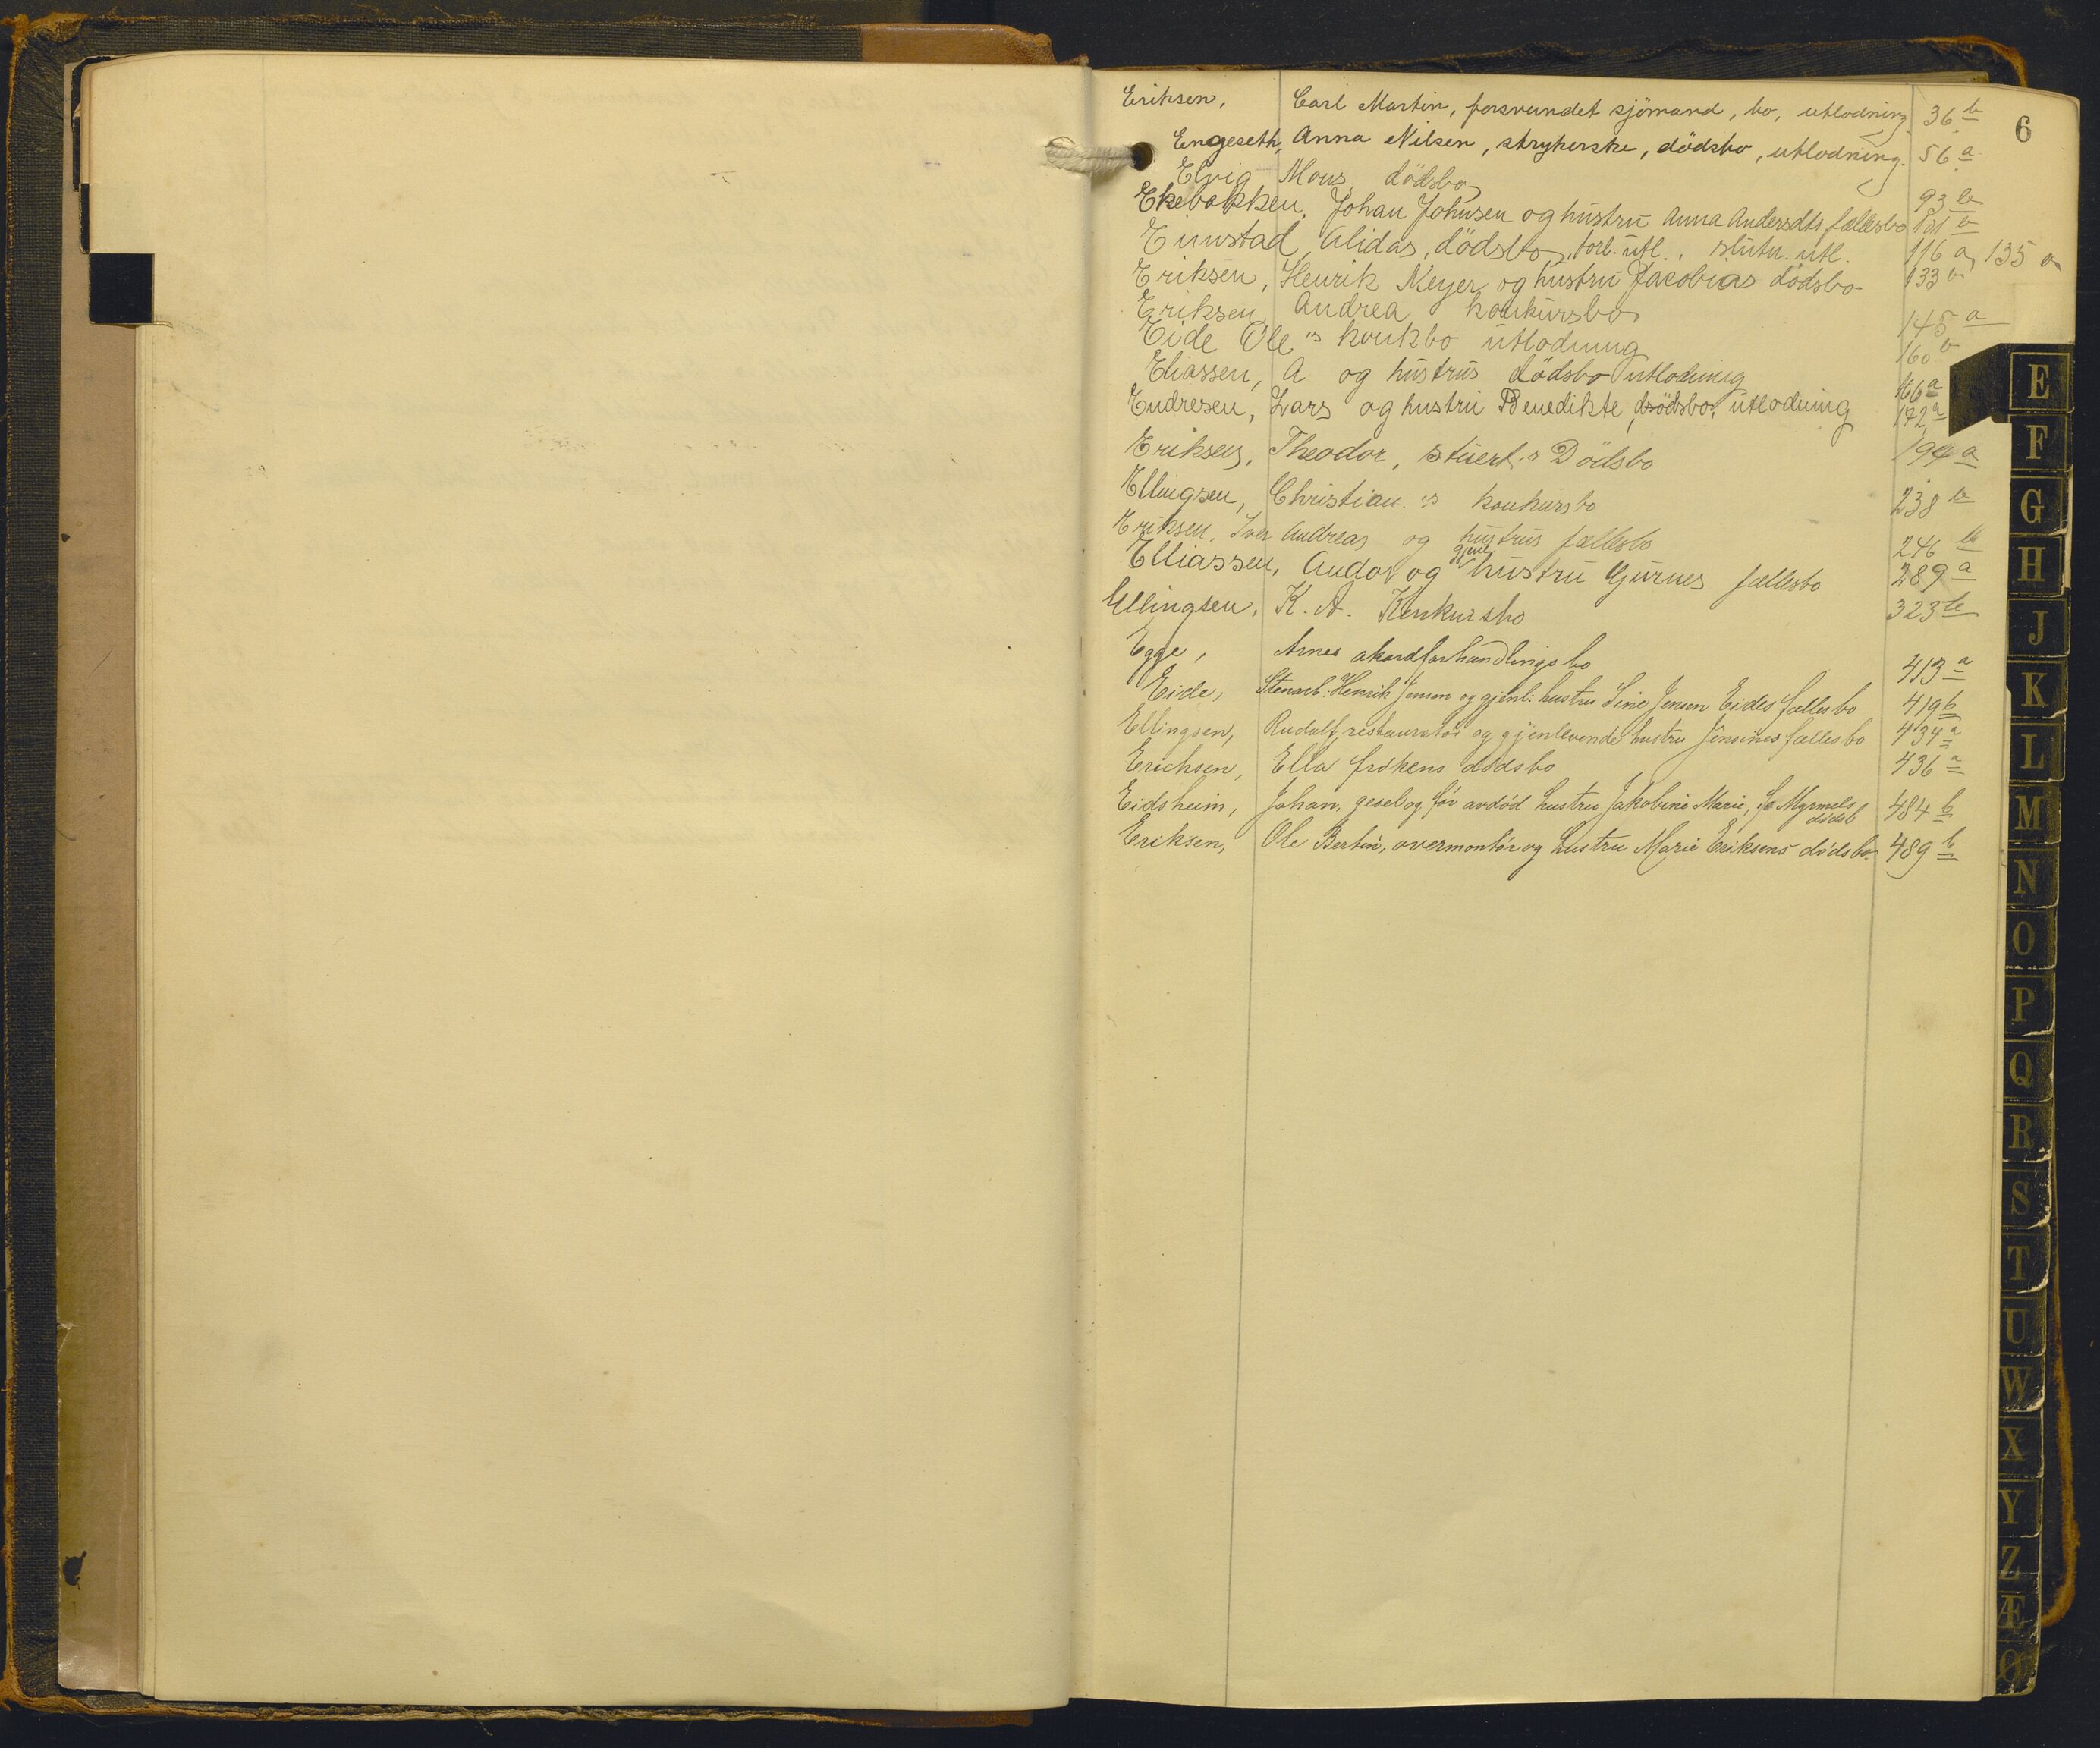 6
Eriksen, Carl Martin, forsvundet sjömand, bo, utlodning 36 b
Engeseth, Anna Nilsen, strykerske, dödsbo, utlodning. 56 a
Elvig Mons, dödsbo 93 b
Ekebakken, Johan Johnsen og hustru Anna Andersdts fællesbo 101 b
Eimstad, Alidas, dödsbo, forl. utl., slutn. utl. 116 a, 135 a
Eriksen, Henrik Meyer og hustru Jacobias dödsbo 133 b
Eriksen, Andrea konkursbo 145 a
Eide Ole's konkbo utlodning 160 b
Eliassen, A og hustrus dödsbo utlodning 166 a
Endresen, Lars og hustru Benedikte, dödsbo, utlodning 172 a
Eriksen, Theodor, stuert,s Dödsbo 194 a
Ellingsen, Christian's konkursbo 238 b
Eriksen, Iver Andreas og hustrus fællesbo 246 b
Elliassen, Andor og gjenl hustru Gurines fællesbo 289 a
Ellingsen, K. A. Konkursbo 323 b
Egge, Arnes akordforhandlingsbo 413 a
Eide, Stenarb: Henrik Jensen og gjenl: hustru Sine Jensen Eides fællesbo 419 b
Ellingsen, Rudolf, restauratör og gjenlevende hustru Jensines fællesbo 434 a
Erichsen, Ella frökens dödsbo 436 a
Eidsheim, Johan, gesel og för avdöd hustru Jakobine Marie, f. Myrmels dödsb 484 b
Eriksen, Ole Bertin, overmontör og hustru Marie Eriksens dödsbo. 489 b
E
F
G
H
J
K
L
M
N
O
P
Q
R
S
T
U
W
X
Y
Z
Æ
Ø